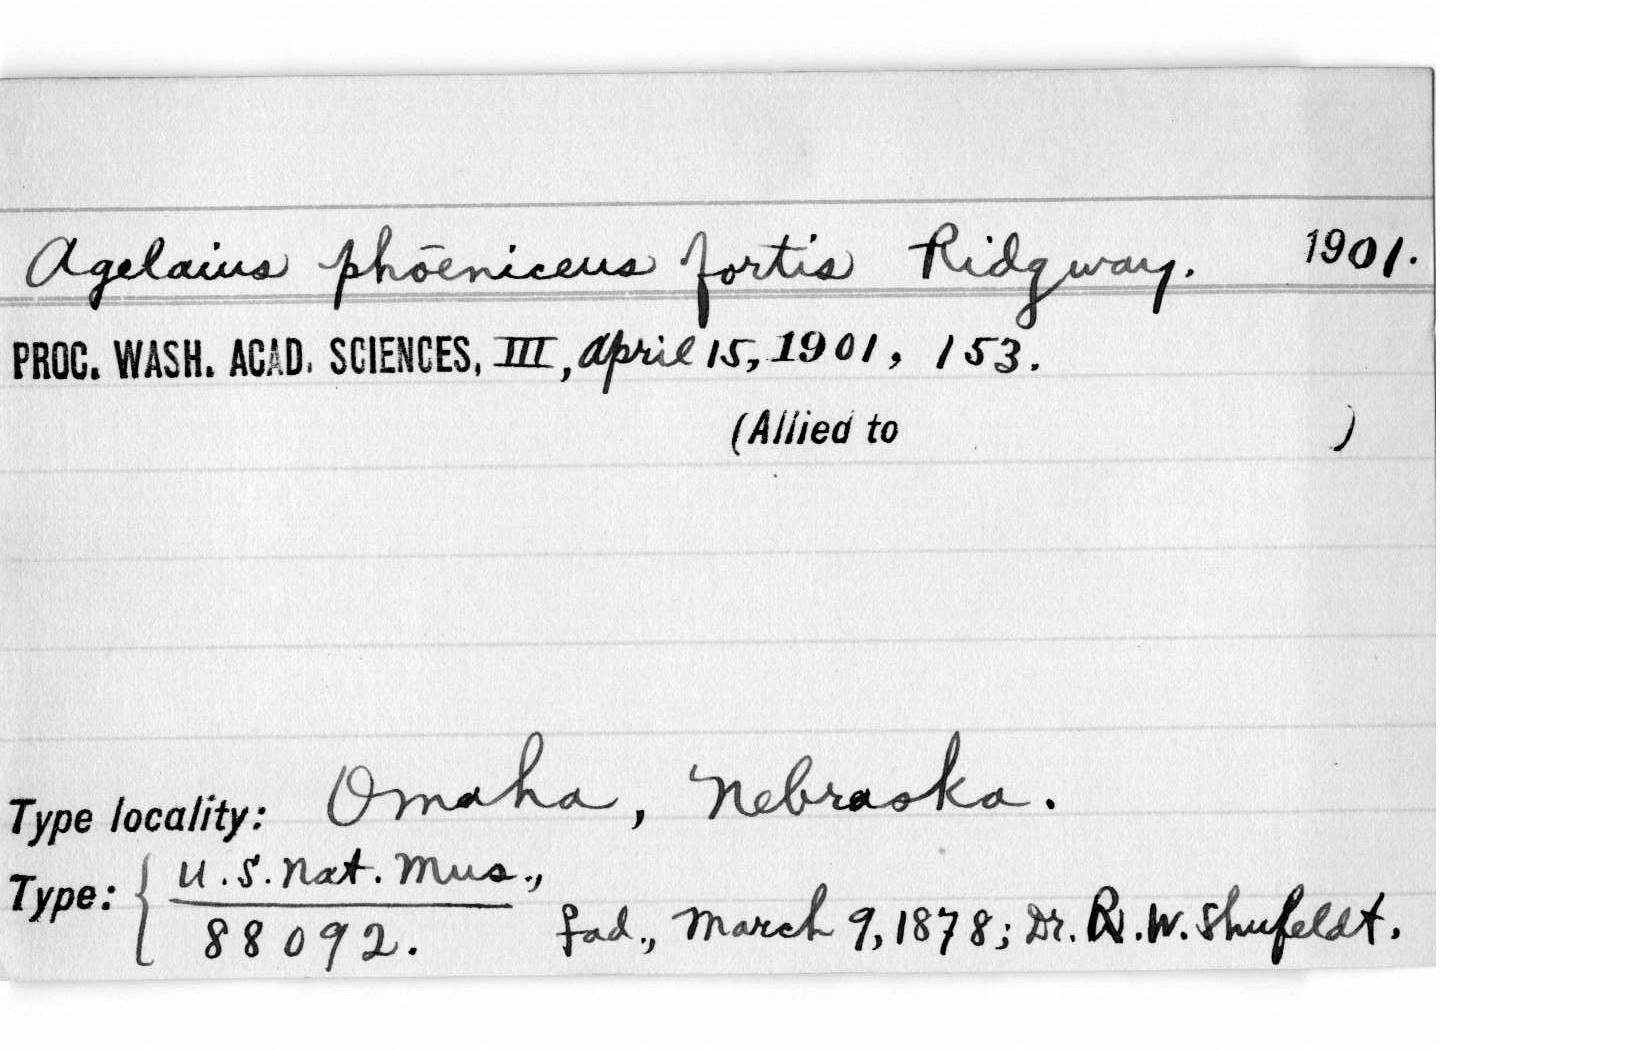 Agelaius phœniceus fortis Ridgway. 1901.
PROC. WASH. ACAD. SCIENCES, III, April 15, 1901, 153.
(Allied to )
Type locality: Omaha, Nebraska.
Type: { U.S. Nat. Mus.,
88092. ad., March 9, 1878; Dr. R. W. Shufeldt.